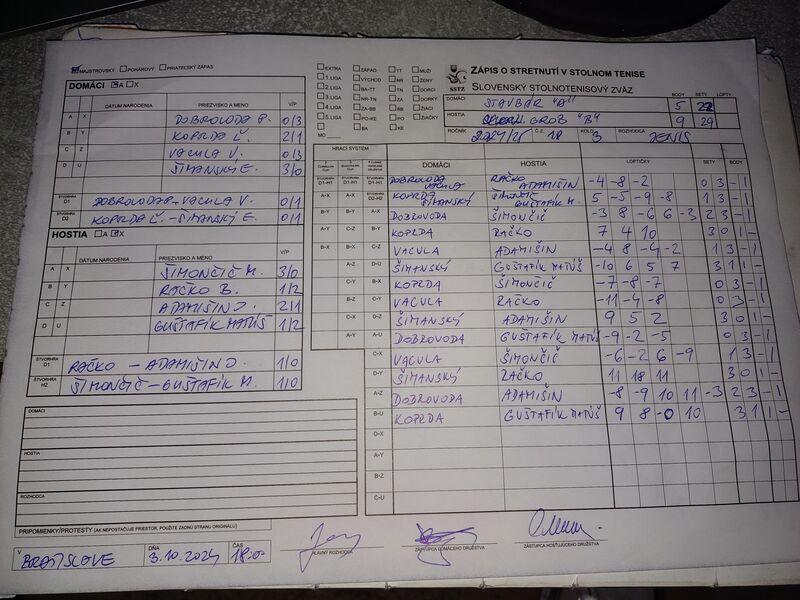 MAJSTROVSKÝ POHÁROVÝ PRIATEĽSKÝ ZÁPAS
ZÁPIS O STRETNUTÍ V STOLNOM TENISE
SLOVENSKÝ STOLNOTENISOVÝ ZVÄZ
SSTZ
EXTRA ZÁPAD TT MUŽI
1.LIGA VÝCHOD NR ŽENY
2.LIGA BA-TT TN DORCI
3.LIGA NR-TN ZA DORKY
4.LIGA ZA-BB PO ŽIACI
5.LIGA PO-KE KE ŽIAČKY
BA
MO
DOMÁCI A X
DÁTUM NARODENIA PRIEZVISKO A MENO V/P
A X DOBROVODA P. 0/3
B Y KOPRDA Ľ. 2/1
C Z VACULA V. 0/3
D U ŠIMANSKÝ E. 3/0
ŠTVORHRA D1 DOBROVODA P. - VACULA V. 0/1
ŠTVORHRA D2 KOPRDA Ľ. - ŠIMANSKÝ E. 0/1
HOSTIA A X
DÁTUM NARODENIA PRIEZVISKO A MENO V/P
A X ŠIMONČIČ M. 3/0
B Y RAČKO B. 1/2
C Z ADAMIŠIN J. 2/1
D U GUŠTAFÍK MATÚŠ 1/2
ŠTVORHRA RAČKO - ADAMIŠIN J. 1/0
ŠTVORHRA H2 ŠIMONČIČ - GUŠTAFÍK M. 1/0
DOMÁCI
HOSTIA
ROZHODCA
PRIPOMIENKY/PROTESTY (AK NEPOSTAČUJE PRIESTOR, POUŽITE ZADNÚ STRANU ORIGINÁLU)
V BRATISLAVE DŇA 3.10.2024 ČAS 18.00
BODY SETY LOPTY
DOMÁCI STAVBÁR "A" 5 22
HOSTIA GROB "B" 9 29
ROČNÍK 2024/25 Č.Z. 18 KOLO 3 ROZHODCA JENIS
HRACÍ SYSTÉM
DOMÁCI HOSTIA LOPTIČKY SETY BODY
D1-H1 D1-H1 D1-H1 DOBROVODA VACULA RAČKO ADAMIŠIN -4 -8 -2 0 3 - 1
A-X A-X D2-H2 KOPRDA ŠIMANSKÝ ŠIMONČIČ GUŠTAFÍK M. 5 -5 -9 -8 1 3 - 1
B-Y B-Y A-X DOBROVODA ŠIMONČIČ -3 8 -6 6 -3 2 3 - 1
A-Y C-Z B-Y KOPRDA RAČKO 7 4 10 3 0 1 -
B-X B-X C-Z VACULA ADAMIŠIN -4 8 -4 -2 1 3 - 1
A-Z D-U ŠIMANSKÝ GUŠTAFÍK MATÚŠ -10 6 5 7 3 1 1 -
C-Y B-X KOPRDA ŠIMONČIČ -7 -8 -7 0 3 - 1
B-Z C-Y VACULA RAČKO -11 -4 -8 0 3 - 1
C-X D-Z ŠIMANSKÝ ADAMIŠIN 9 5 2 3 0 1 -
A-Y A-U DOBROVODA GUŠTAFÍK MATÚŠ -9 -2 -5 0 3 - 1
C-X VACULA ŠIMONČIČ -6 -2 6 -9 1 3 - 1
D-Y ŠIMANSKÝ RAČKO 11 18 11 3 0 1 -
A-Z DOBROVODA ADAMIŠIN -8 -9 10 11 -3 2 3 - 1
B-U KOPRDA GUŠTAFÍK MATÚŠ 9 8 -0 10 3 1 1 -
D-X
A-Y
B-Z
C-U
HLAVNÝ ROZHODCA
ZÁSTUPCA DOMÁCEHO DRUŽSTVA
ZÁSTUPCA HOSŤUJÚCEHO DRUŽSTVA